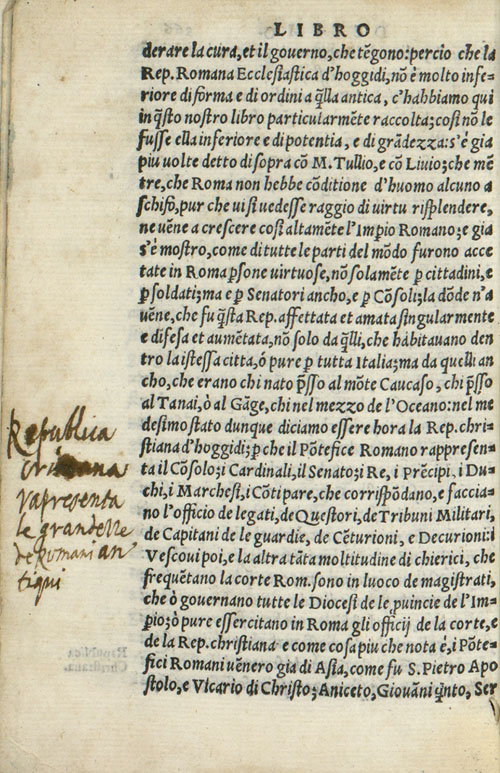 LIBRO
derare la cura, et il governo, che tẽgono: percio che la
Rep. Romana Ecclesiastica d'hoggidi, nõ è molto infe=
riore di forma e di ordini a q̃lla antica, c'habbiamo qui
in q̃sto nostro libro particularmẽte raccolta; cosi nõ le
fusse ella inferiore e di potentia, e di grãdezza: s'è gia
piu uolte detto di sopra cõ M. Tullio, e cõ Liuio; che mẽ
tre, che Roma non hebbe cõditione d'huomo alcuno a
schifo, pur che ui si uedesse raggio di uirtu risplendere,
ne uẽne a crescere cosi altamẽte l'Impio Romano; e gia
s'è mostro, come di tutte le parti del mõdo furono acce
tate in Roma ꝑsone uirtuose, nõ solamẽte ꝑ cittadini, e
ꝑ soldati; ma e ꝑ Senatori ancho, e ꝑ Cõsoli; la dõde n'a
uẽne, che fu q̃sta Rep. affettata et amata singularmente
e difesa et aumẽtata, nõ solo da q̃lli, che habitauano den
tro la istessa citta, ò pure ꝑ tutta Italia; ma da quelli an
cho, che erano chi nato p̃sso al mõte Caucaso, chi p̃sso
al Tanai, ò al Gãge, chi nel mezzo de l'Oceano: nel me
desimo stato dunque diciamo essere hora la Rep. chri=
stiana d'hoggidi; ꝑ che il Põtefice Romano rappresen=
ta il Cõsolo; i Cardinali, il Senato; i Re, i Prẽcipi, i Du=
chi, i Marchesi, i Cõti pare, che corrispõdano, e faccia=
no l'officio de legati, de Questori, de Tribuni Militari,
de Capitani de le guardie, de Cẽturioni, e Decurioni: i
Vescoui poi, e la altra tãta moltitudine di chierici, che
frequẽtano la corte Rom. sono in luoco de magistrati,
che ò gouernano tutte le Diocesi de le ꝓuincie de l'Im=
pio; ò pure essercitano in Roma gli officij de la corte, e
de la Rep. christiana e come cosa piu che nota è, i Põte=
fici Romani uẽnero gia di Asia, come fu S. Pietro Apo
stolo, e Vicario di Christo; Aniceto, Giouãni q̃nto, Ser
Republica
cristiana
rapresenta
le grandezze
de Romani an
tiqui